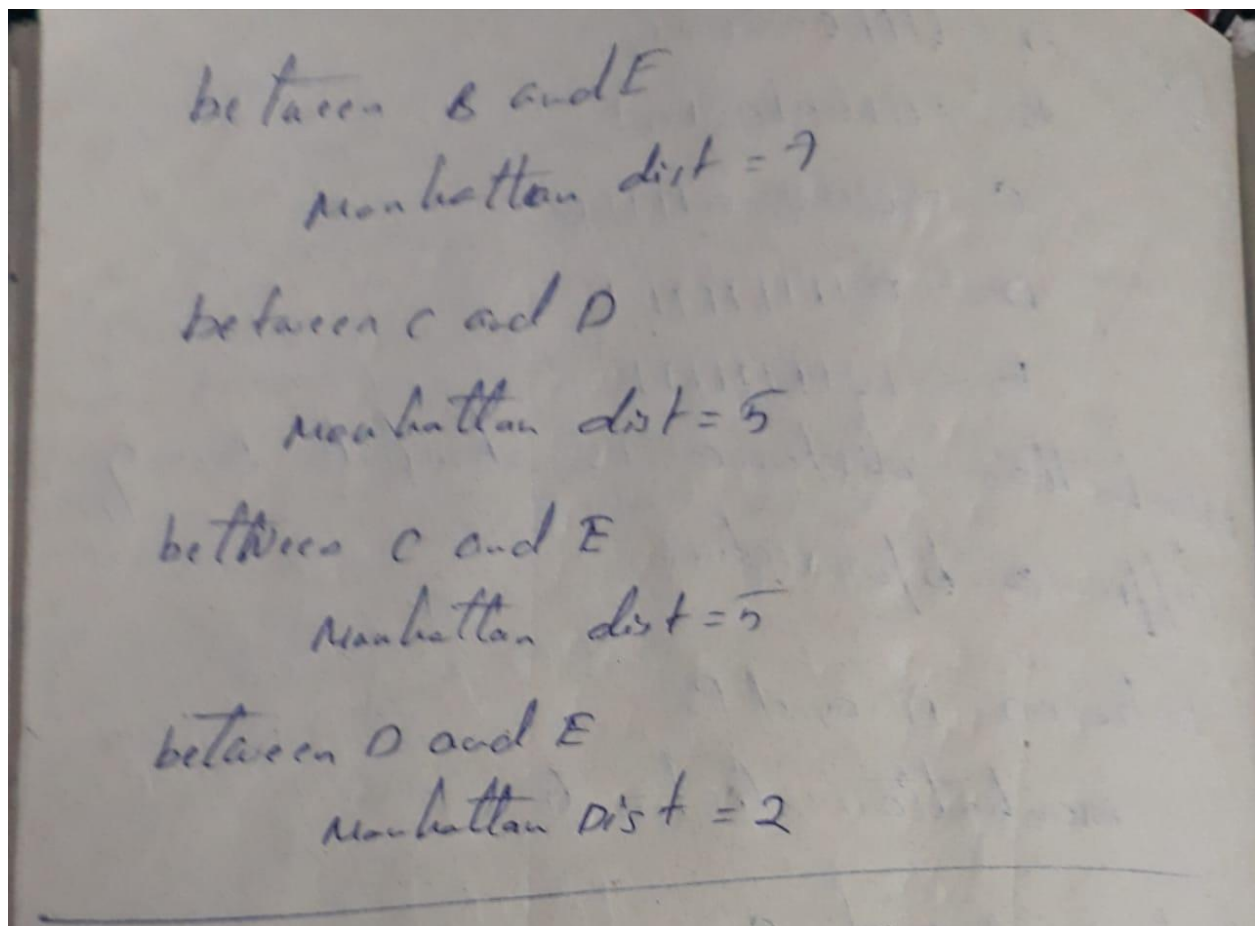 between B and E
Manhattan dist = 7
between C and D
Manhattan dist = 5
between C and E
Manhattan dist = 5
between D and E
Manhattan Dist = 2